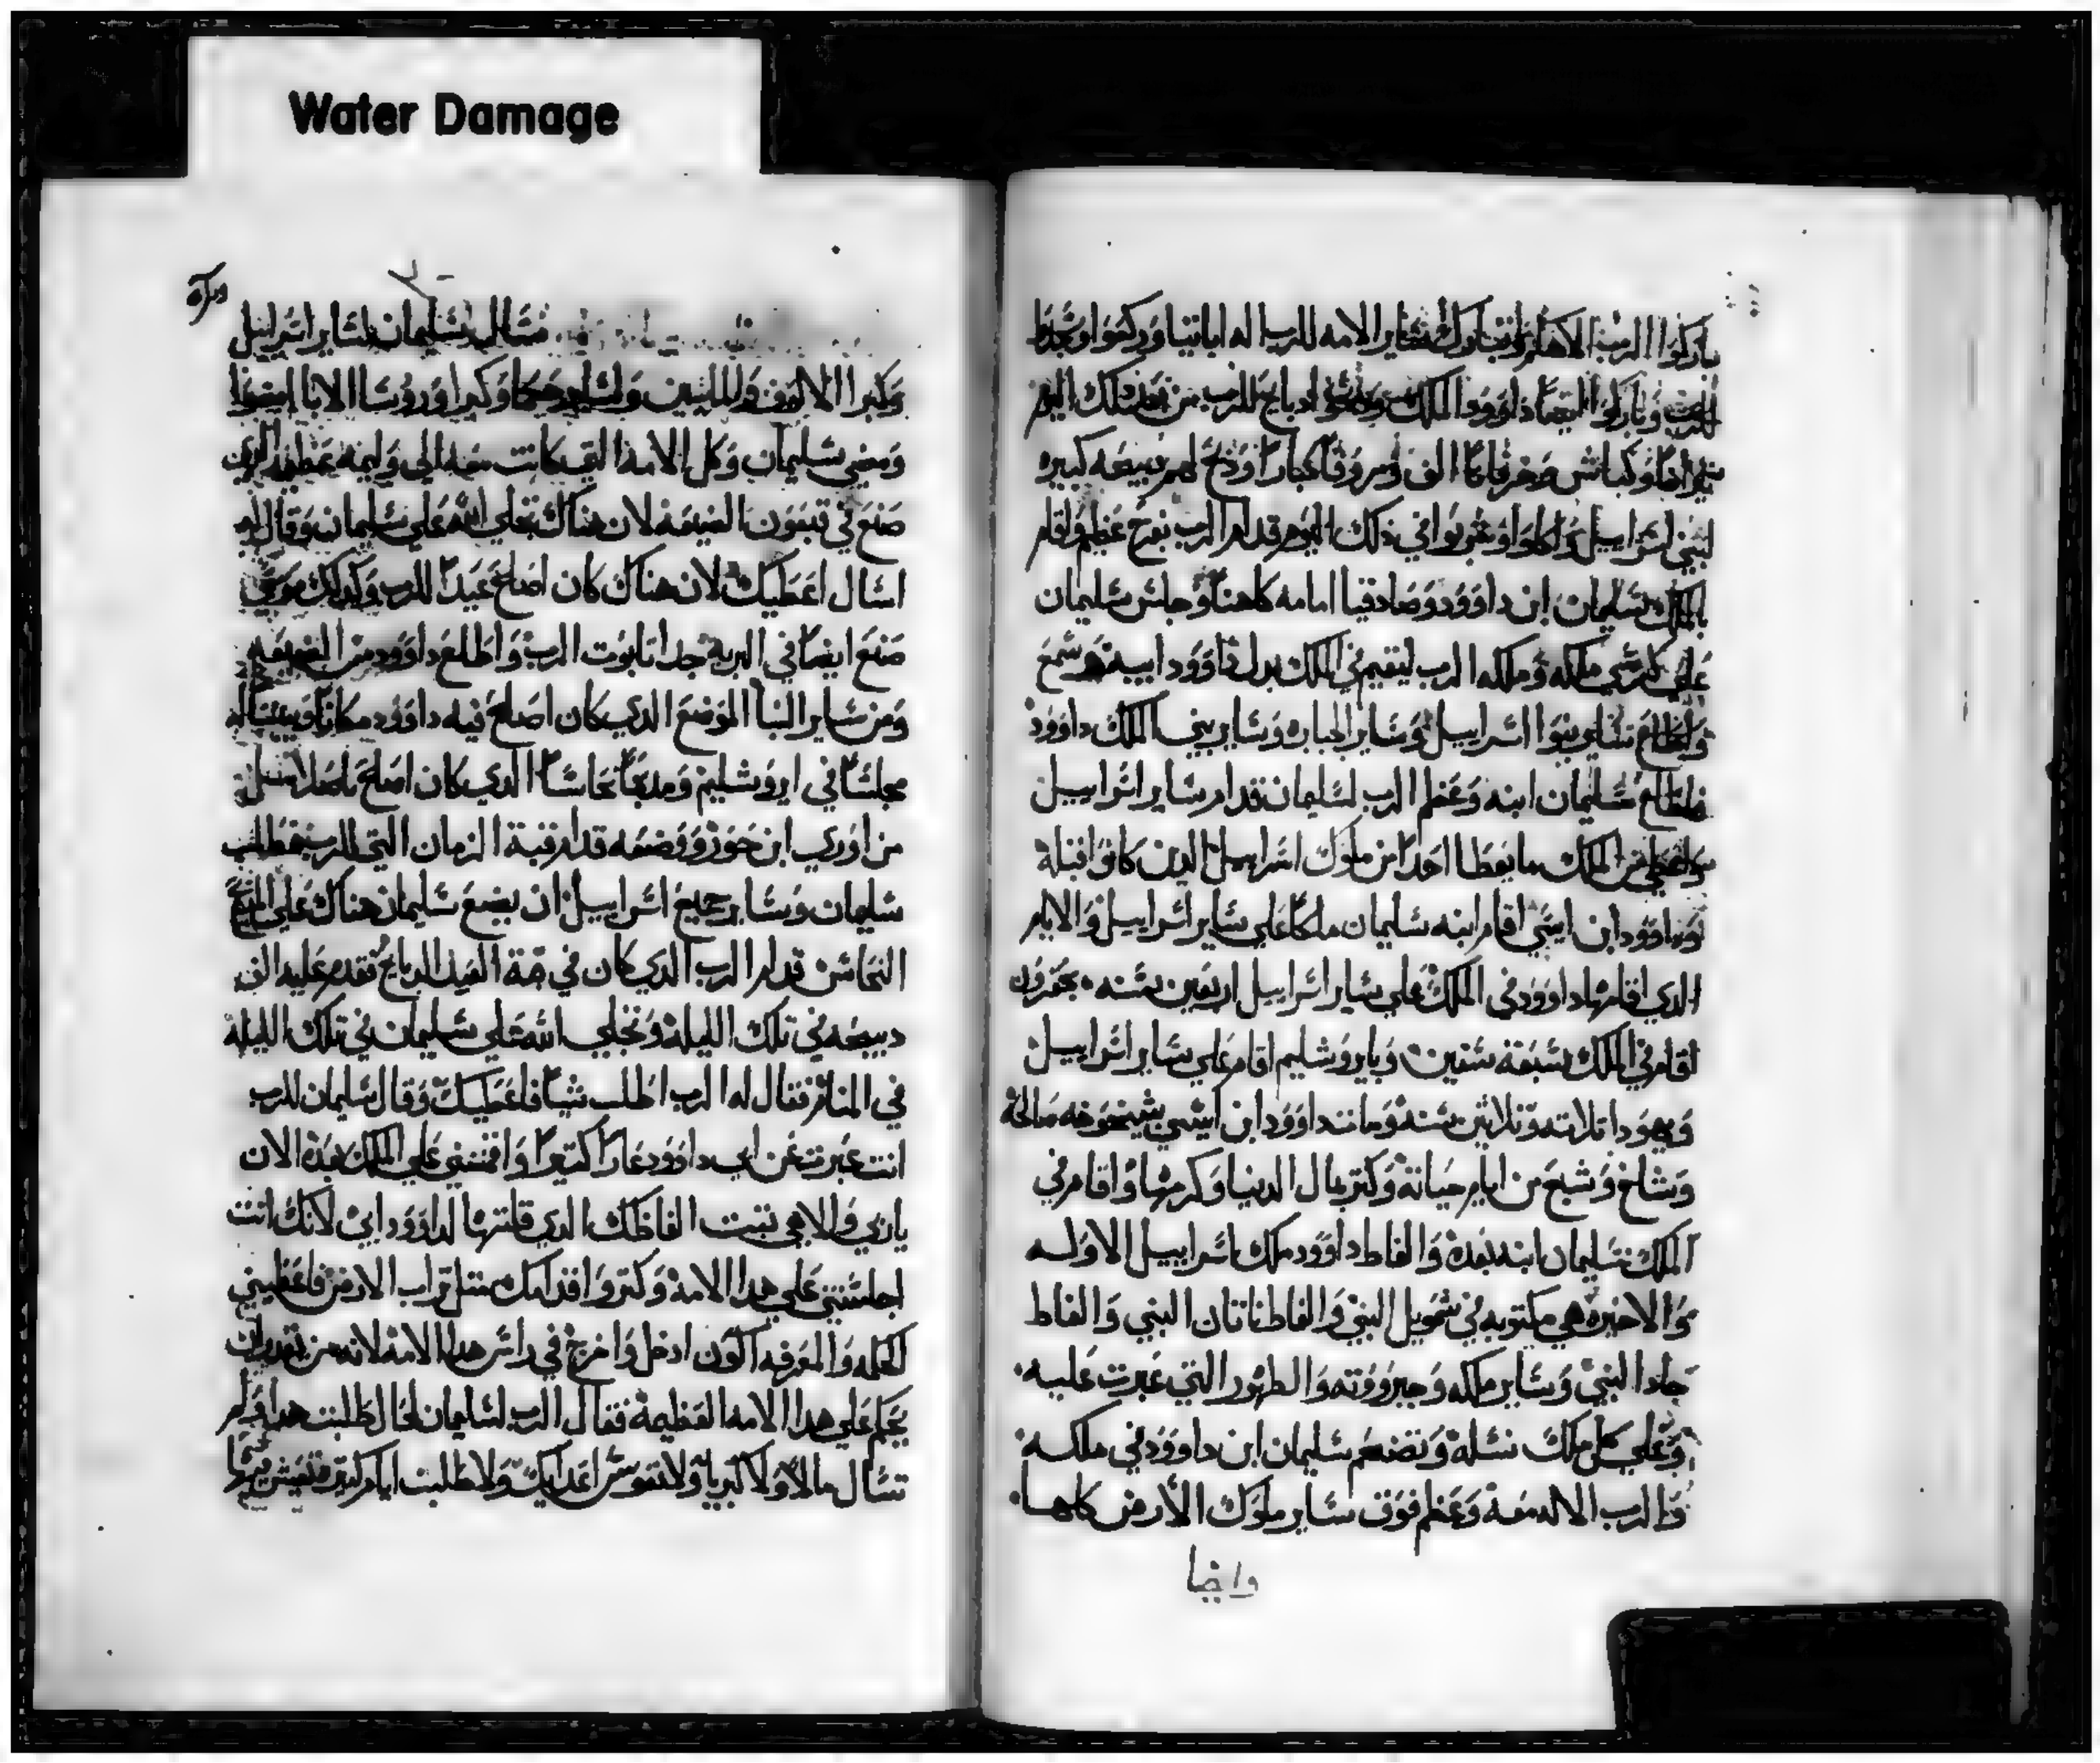 Water Damage
باركوا الرب الاهكم وتبارك سايرالامه للرب اله اباتنا وركعوا وسجدوا
للرب وباركوا ايضا داوود الملك ودبحوا دبايح للرب من بعد دلك اليوم
وكباش وخرفانا الف ومروقا كبارا ودبح لهم دبيحه كبيره
لبني اسراييل واكلوا وشربوا في دلك اليوم قدام الرب بفرح عظيم واقام
الملك سليمان ابن داوود وصادقيا امامه كاهنا وجلس سليمان
علي كرسي ملكه وملكه الرب ليقيم في الملك بدل داوود ابيه وسمع
واطاع ساير بنوا اسراييل وساير الجبابره وساير بني الملك داوود
سليمان ابنه وعظم الرب لسليمان قدام ساير اسراييل
الملك ما يعطا احدا من ملوك اسراييل الدين كانوا قبله
داوود ابن ايسي اقام ابنه سليمان ملكا علي ساير اسراييل والايام
الدي اقامها داوود في الملك علي ساير اسراييل اربعين سنه بحبرون
اقام في الملك سبعة سنين وبايروشليم اقام علي ساير اسراييل
ويهودا تلاته وتلاتين سنه ومات داوود ابن ايسي بشيخوخه صالحة
وشاخ وشبع من ايام حياته وكتر مال الدنيا وكرمها واقام في
الملك سليمان ابنه بعده والفاط داوود ملك اسراييل الاوله
والاخيره هي مكتوبه في شمويل النبي والفاط ناتان النبي والفاط
جادا النبي وساير ملكه وجبرووته والطهور التي عبرت عليه
وعلي كل ملك نسله وتضعم سليمان ابن داوود في ملكه
والرب الاله معه وعظم فوق ساير ملوك الارض كلها
وايضا
فسال سليمان لساير اسراييل
وكبرا الالوف وللمايين ولساير حكما وكبرا وروسا الابا
ومضي سليمان وكل الامه التي كانت معه الي وليمه عظيمه الدي
صنع في قبعون الضيعه لان هناك تجلي الله علي سليمان وقال له
اسال اعطيك لان هناك كان اصلح عبدا للرب وكدلك موسي
صنع ايضا في البرية جدا تابوت الرب واطلع داوود من الضيعه
ومن ساير البنا الموضع الدي كان اصلح فيه داوود مكانا
مجلسا في ايروشليم ومدبحا نحاسا الدي كان اصلح باصلاسل
من اوري ابن حور ووضعه قدام قبة الزمان التي للرب فطلب
سليمان وساير جميع اسراييل ان يضع سليمان هناك علي المدبح
النحاس قدام الرب الدي كان في قبة العيد الدبايح فقدم عليه الف
دبيحه في تلك الليلة وتجلي الله علي سليمان في تلك الليلة
في المنام فقال له الرب اطلب شيا فاعطيك وقال سليمان للرب
انت عبرت عن ابي داوود عارا كتيرا واقمتني علي الملك بعده الان
ياربي والاهي تبتت الفاظك الدي قلتها لداوود ابي لانك انت
اجلستني علي هدا الامة وكتروا قدامك متل تراب الارض فاعطيني
الحكمه والمعرفه اكون ادخل واخرج في راس هدا الامة لانه من يقدر ان
يحكم علي هدا الامه العظيمة فقال الرب لسليمان لحال طلبت هدا ولم
تسال مالا ولا كبريا ولا نفوس اعدايك ولا طلبت ايام كتيره تعيش فيها